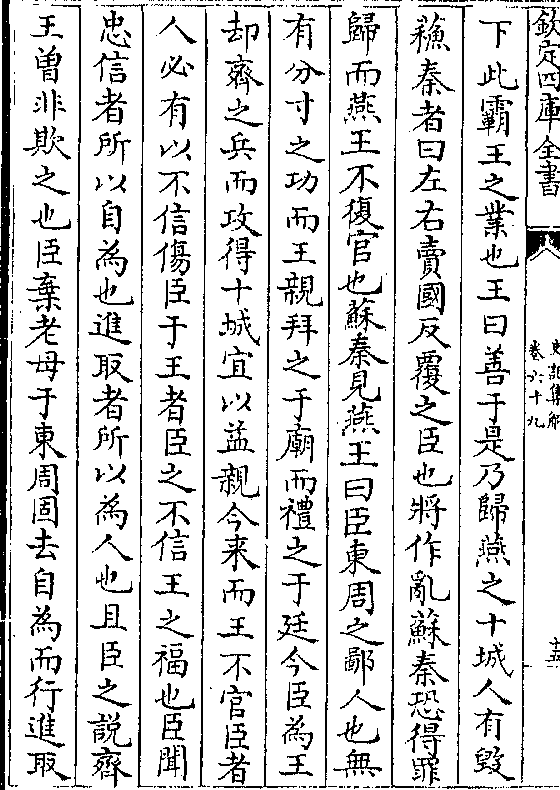 欽定四庫全書
史記集解
卷六十九
十五
下此霸王之業也王曰善于是乃歸燕之十城人有毀
蘓秦者曰左右賣國反覆之臣也將作亂蘇秦恐得罪
歸而燕王不復官也蘇秦見燕王曰臣東周之鄙人也無
有分寸之功而王親拜之于廟而禮之于廷今臣為王
却齊之兵而攻得十城宜以益親今来而王不官臣者
人必有以不信傷臣于王者臣之不信王之福也臣聞
忠信者所以自為也進取者所以為人也且臣之説齊
王曽非欺之也臣棄老母于東周固去自為而行進取